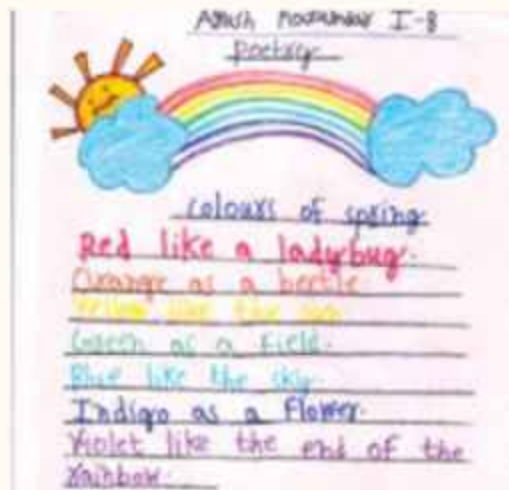 I-B
Poetry
Colours of spring
Red like a ladybug.
Orange as a beetle.
Yellow like the sun
Green as a field.
Blue like the sky.
Indigo as a flower.
Violet like the end of the
rainbow.